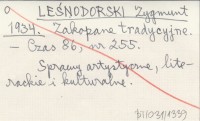 LEŚNODORSKI Zygmunt
1934. Zakopane tradycyjne.
- Czas 86, nr 255.
Sprawy artystyczne, lite-
rackie i kulturalne.